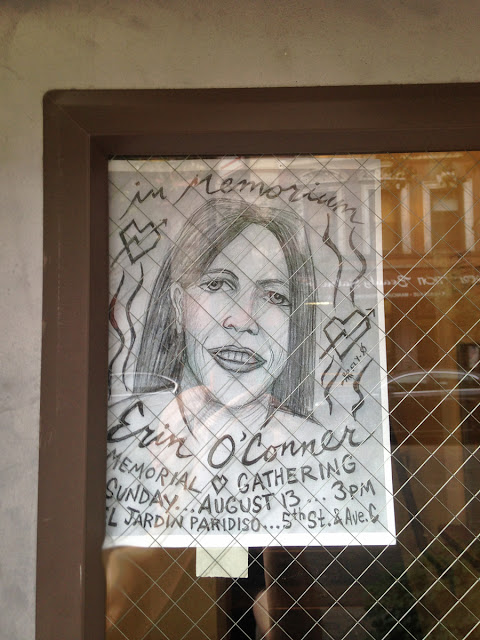 in Memorium
Erin O'Conner
MEMORIAL ♡ GATHERING
SUNDAY...AUGUST 13... 3PM
EL JARDIN PARIDISO...5th St. & Ave. C